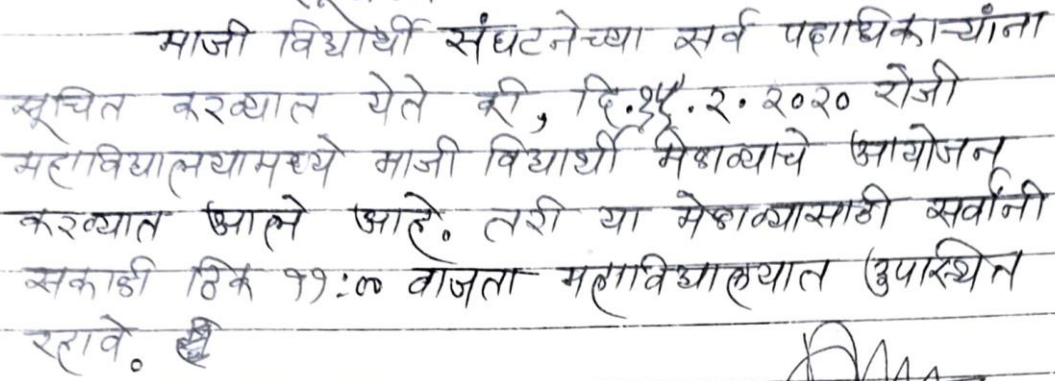 माजी विद्यार्थी संघटनेच्या सर्व पदाधिकाऱ्यांना
सूचित करण्यात येते की, दि. .२.२०२० रोजी
महाविद्यालयामध्ये माजी विद्यार्थी मेळाव्याचे आयोजन
करण्यात आले आहे. तरी या मेळाव्यासाठी सर्वांनी
सकाळी ठिक ११:०० वाजता महाविद्यालयात उपस्थित
रहावे.